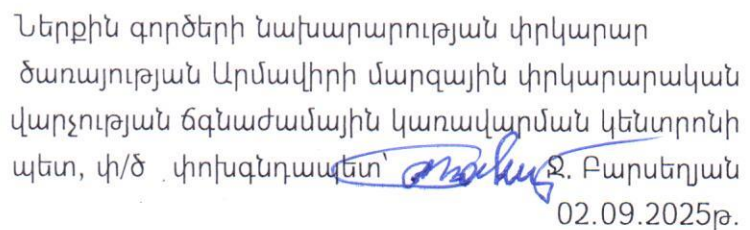 Ներքին գործերի նախարարության փրկարար
ծառայության Արմավիրի մարզային փրկարարական
վարչության ճգնաժամային կառավարման կենտրոնի
պետ, փ/ծ փոխգնդապետ՝ Ջ. Բարսեղյան
02.09.2025թ.